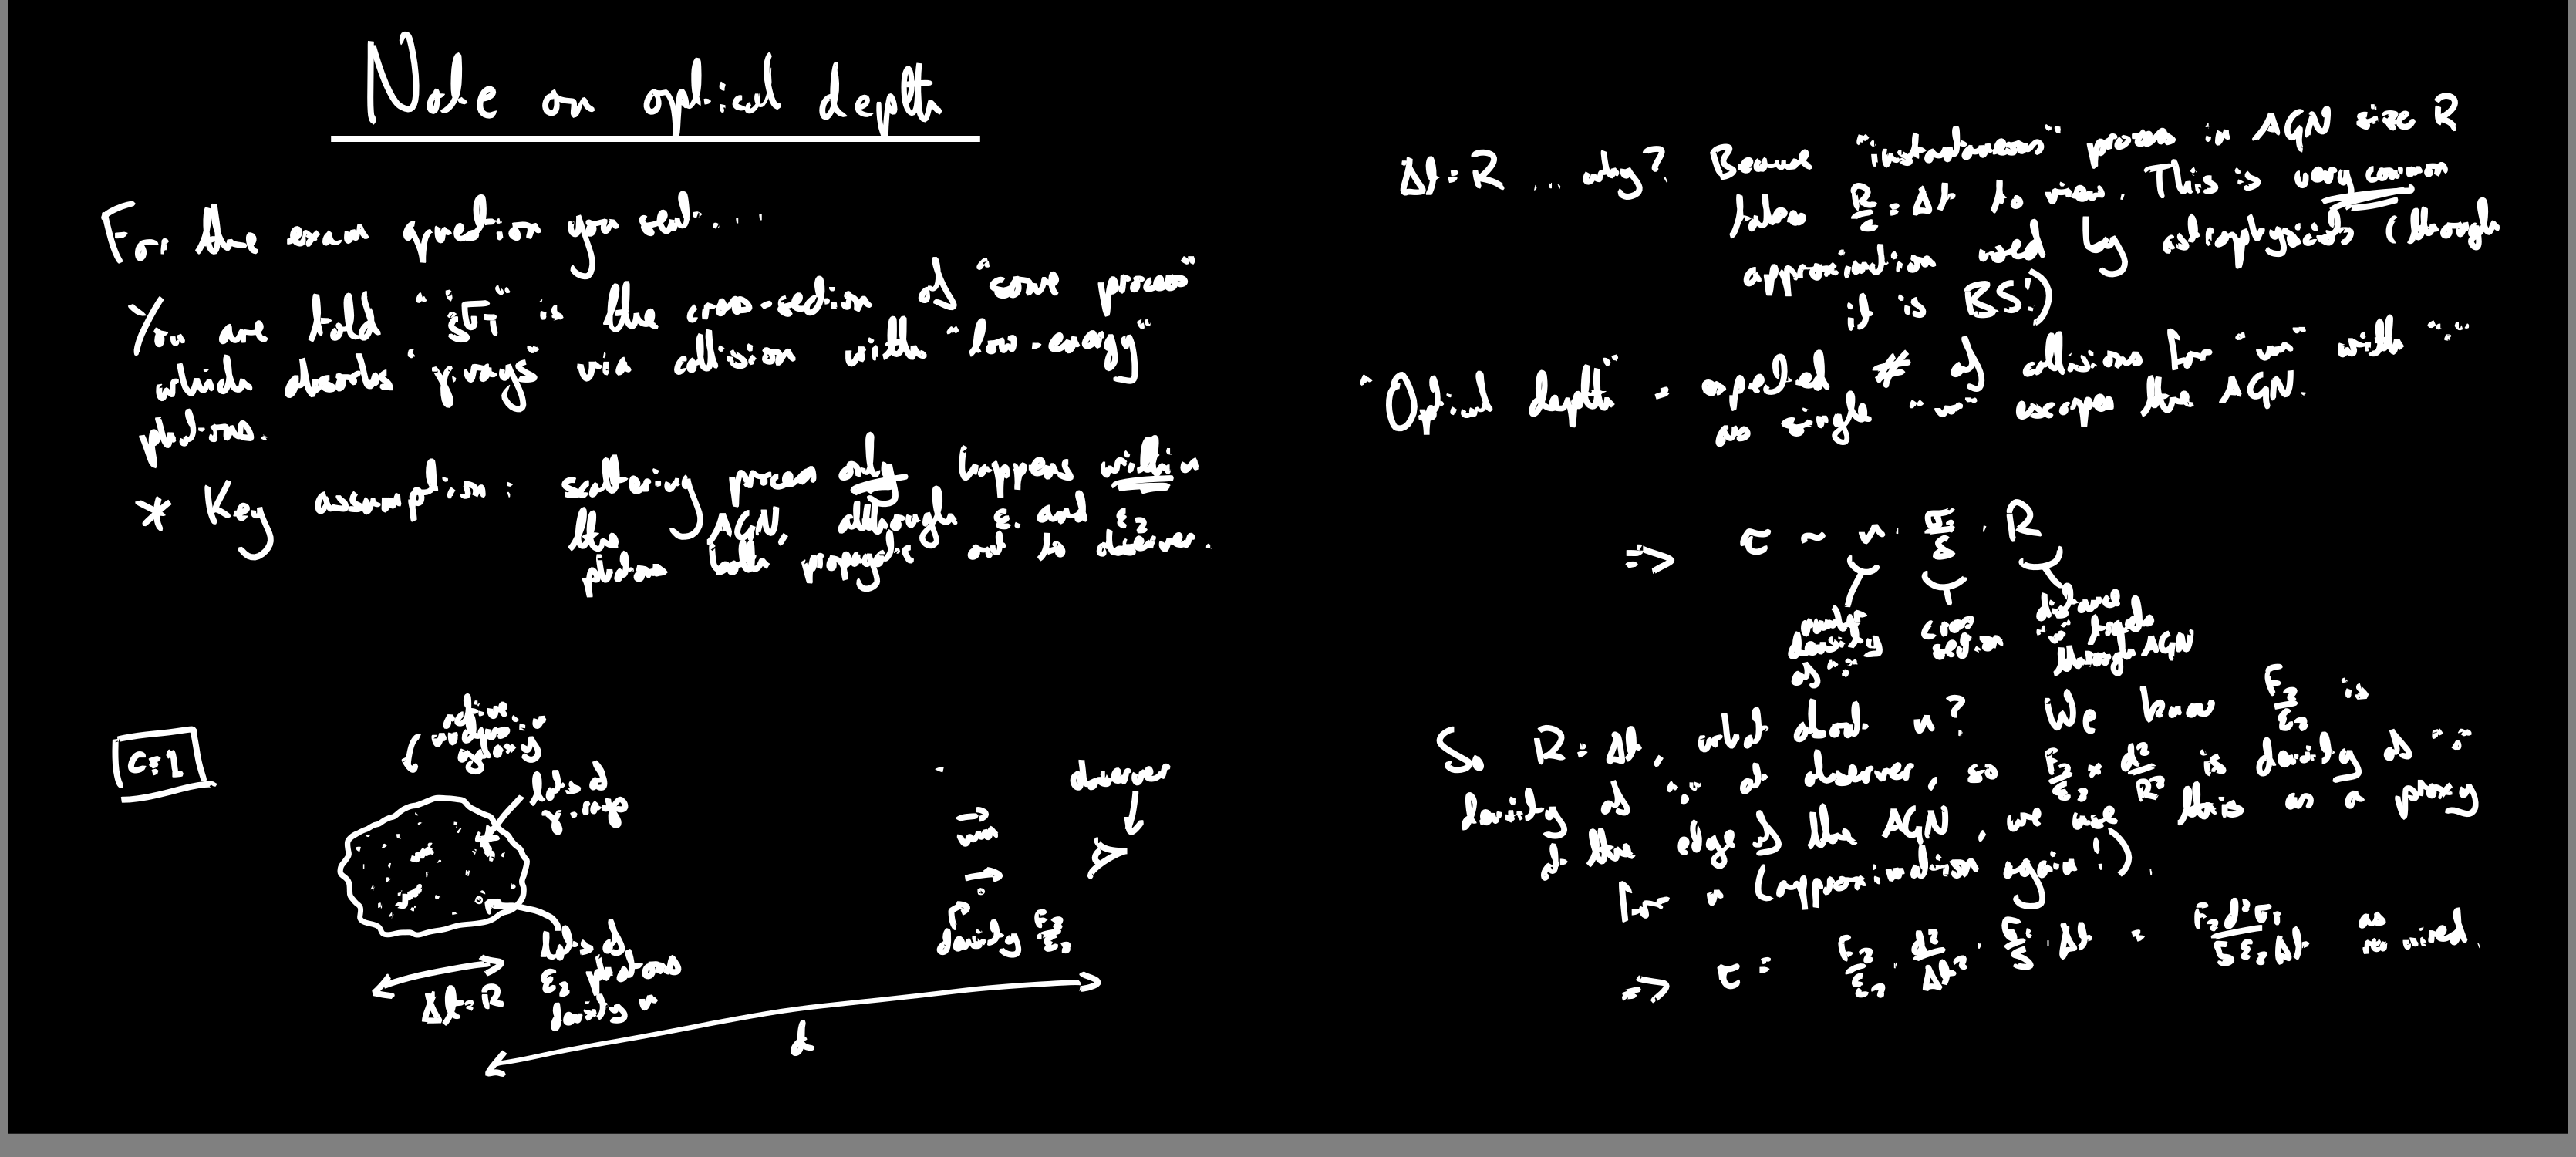 Note on optical depth
For the exam question you sent...
You are told "⅕σT" is the cross-section of "some process"
which absorbs "γ-rays" via collision with "low-energy"
photons.
* Key assumption: scattering process only happens within
the AGN, although ε₁ and ε₂
photons both propagate out to observer.
c=1
active
nucleus
galaxy
lots of
γ-rays
observer
lots of
ε₂ photons
density n
density F₂/ε₂
Δt=R
d
Δt=R ... why? Because "instantaneous" process in AGN size R
takes R/c = Δt to view. This is very common
approximation used by astrophysicists (though
it is BS!)
"Optical depth" = expected # of collisions for "~" with "·"
as single "~" escapes the AGN.
=> τ ~ n · σT/5 · R
number
density
of "·"
cross
section
distance
"~" travels
through AGN
So R=Δt, what about n? We know F₂/ε₂ is
density of "·" at observer, so F₂/ε₂ × d²/R² is density of "·"
at the edge of the AGN, we use this as a proxy
for n (approximation again!).
=> τ = F₂/ε₂ · d²/Δt² · σT/5 · Δt = F₂d²σT/5ε₂Δt as
required.